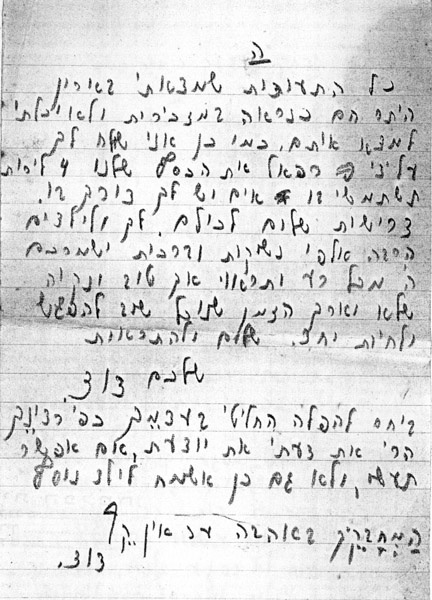 ה
כל התעודות שמצאתי
היתר הם כנראה במזכירות ולא יכלתי
למצא אותם. כמו כן אני שולח לך
על ידי רפאל את הכסף שלנו 4 לירות
תשתמשי בו אים יש לך צורך בו.
דרישות שלום לכולם. לך ולילדים
הרבה אלפי נשיקות וברכות ישמרכם
ה' מכל רע אך טוב ונקוה
שלא יארך הזמן שנוכל שוב להפגש
ולחיות יחד. שלום ולהתראות
שלכם דוד.
ביחס להפלה תחליטי בעצמך כפי רצונך
הרי את דעתי את יודעת, אם אפשר
תעשי, ולא גם כן אשמח לילד נוסף
המחבקך באהבה עד אין קץ
דוד.